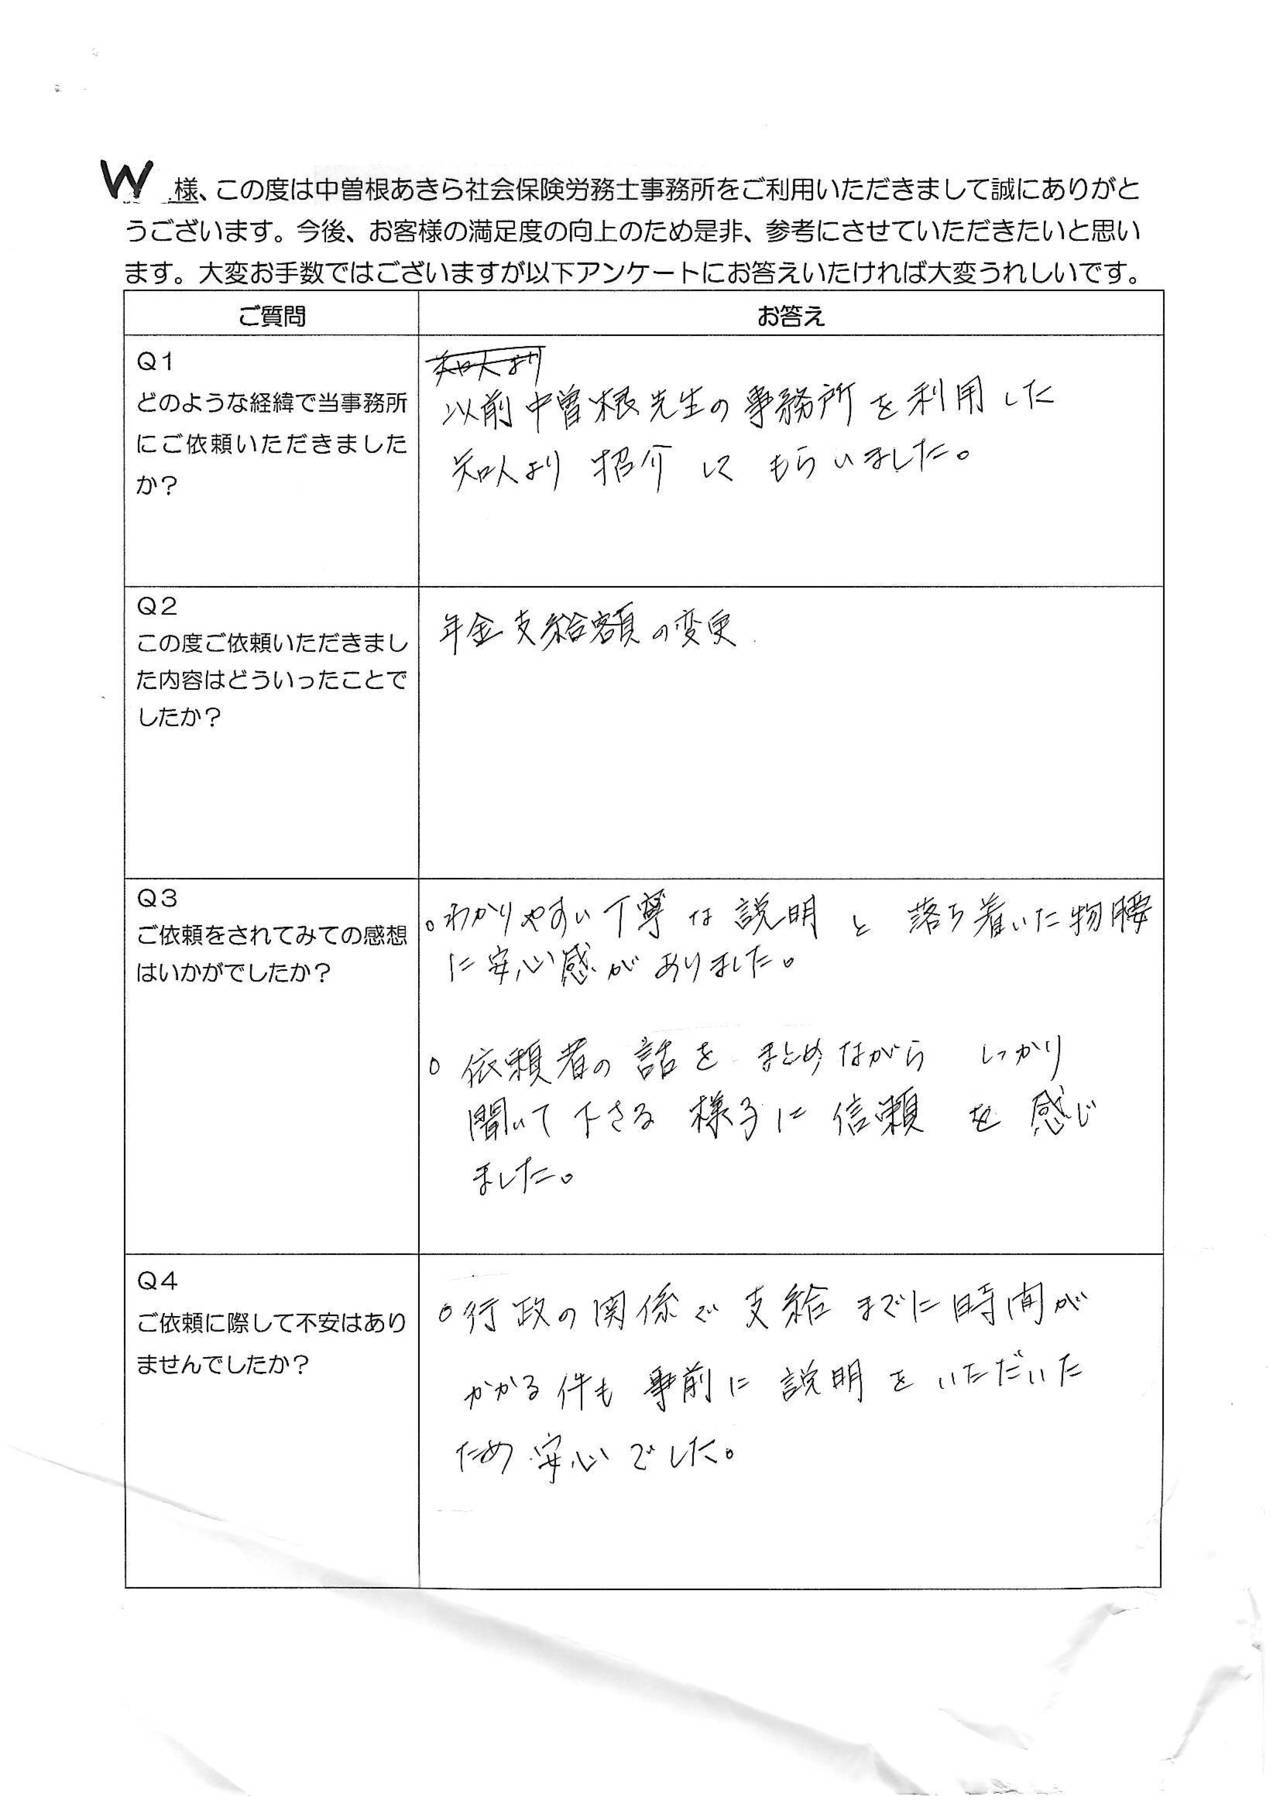 W 様、この度は中曽根あきら社会保険労務士事務所をご利用いただきまして誠にありがと
うございます。今後、お客様の満足度の向上のため是非、参考にさせていただきたいと思い
ます。大変お手数ではございますが以下アンケートにお答えいたければ大変うれしいです。
ご質問
お答え
Q1
どのような経緯で当事務所
にご依頼いただきました
か？
知人より
以前中曽根先生の事務所を利用した
知人より 紹介して もらいました。
Q2
この度ご依頼いただきまし
た内容はどういったことで
したか？
年金支給額の変更.
Q3
ご依頼をされてみての感想
はいかがでしたか？
○わかりやすい丁寧な説明と落ち着いた物腰
に安心感がありました。
○依頼者の話をまとめながら しっかり
聞いて下さる様子に信頼を感じ
ました。
Q4
ご依頼に際して不安はあり
ませんでしたか？
○行政の関係で支給までに時間が
かかる件も事前に説明をいただいた
ため安心でした。